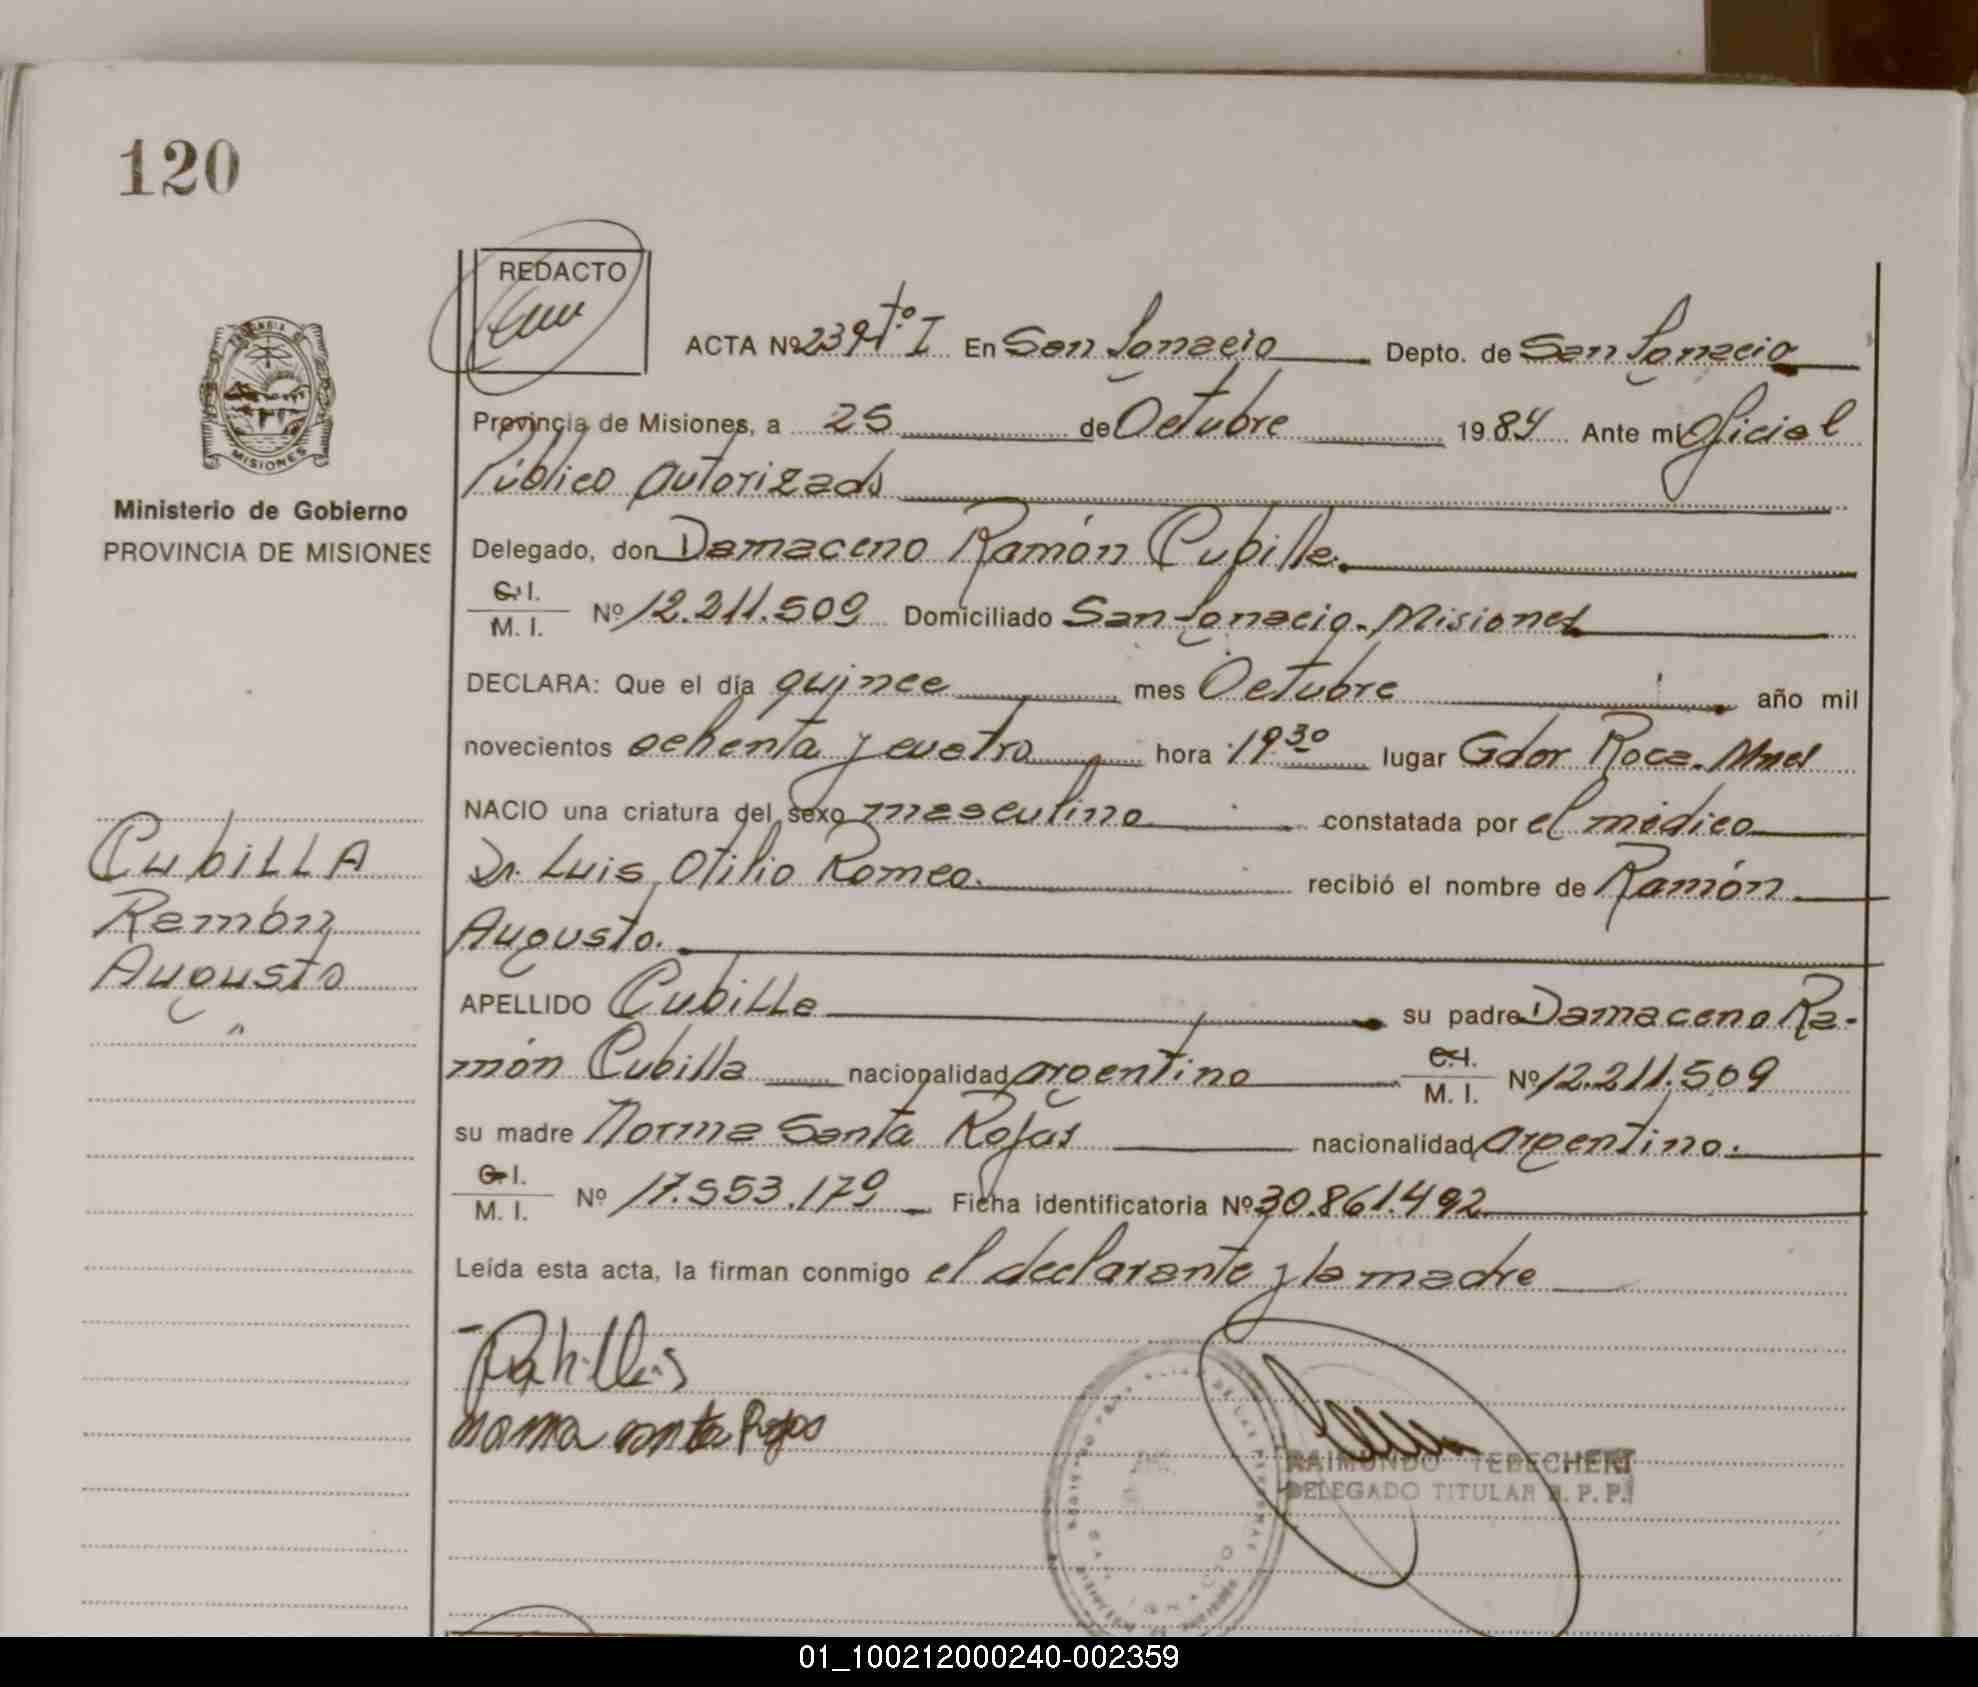 120
REDACTO
ACTA Nº 239 Tº I En San Ignacio Depto. de San Ignacio
Provincia de Misiones, a 25 de Octubre 1984 Ante mi Oficial
Público Autorizado
Delegado, don Damaceno Ramón Cubilla.
C.I. M. I. Nº 12.211.509 Domiciliado San Ignacio - Misiones
DECLARA: Que el día quince mes Octubre año mil
novecientos ochenta y cuatro hora 19 30 lugar Gdor Roca - Mnes
NACIO una criatura del sexo masculino constatada por el médico
Dr. Luis Otilio Romeo. recibió el nombre de Ramón
Augusto.
APELLIDO Cubilla su padre Damaceno Ra-
món Cubilla nacionalidad argentino C.I. M. I. Nº 12.211.509
su madre Norma Santa Rojas nacionalidad argentino.
C.I. M. I. Nº 17.553.179 Ficha identificatoria Nº 30.861.492
Leída esta acta, la firman conmigo el declarante y la madre
norma santa Rojas
RAIMUNDO TEBECHERI
DELEGADO TITULAR R. P. P.
MISIONES
Ministerio de Gobierno
PROVINCIA DE MISIONES
CubiLLA
Ramón
Augusto
01_100212000240-002359